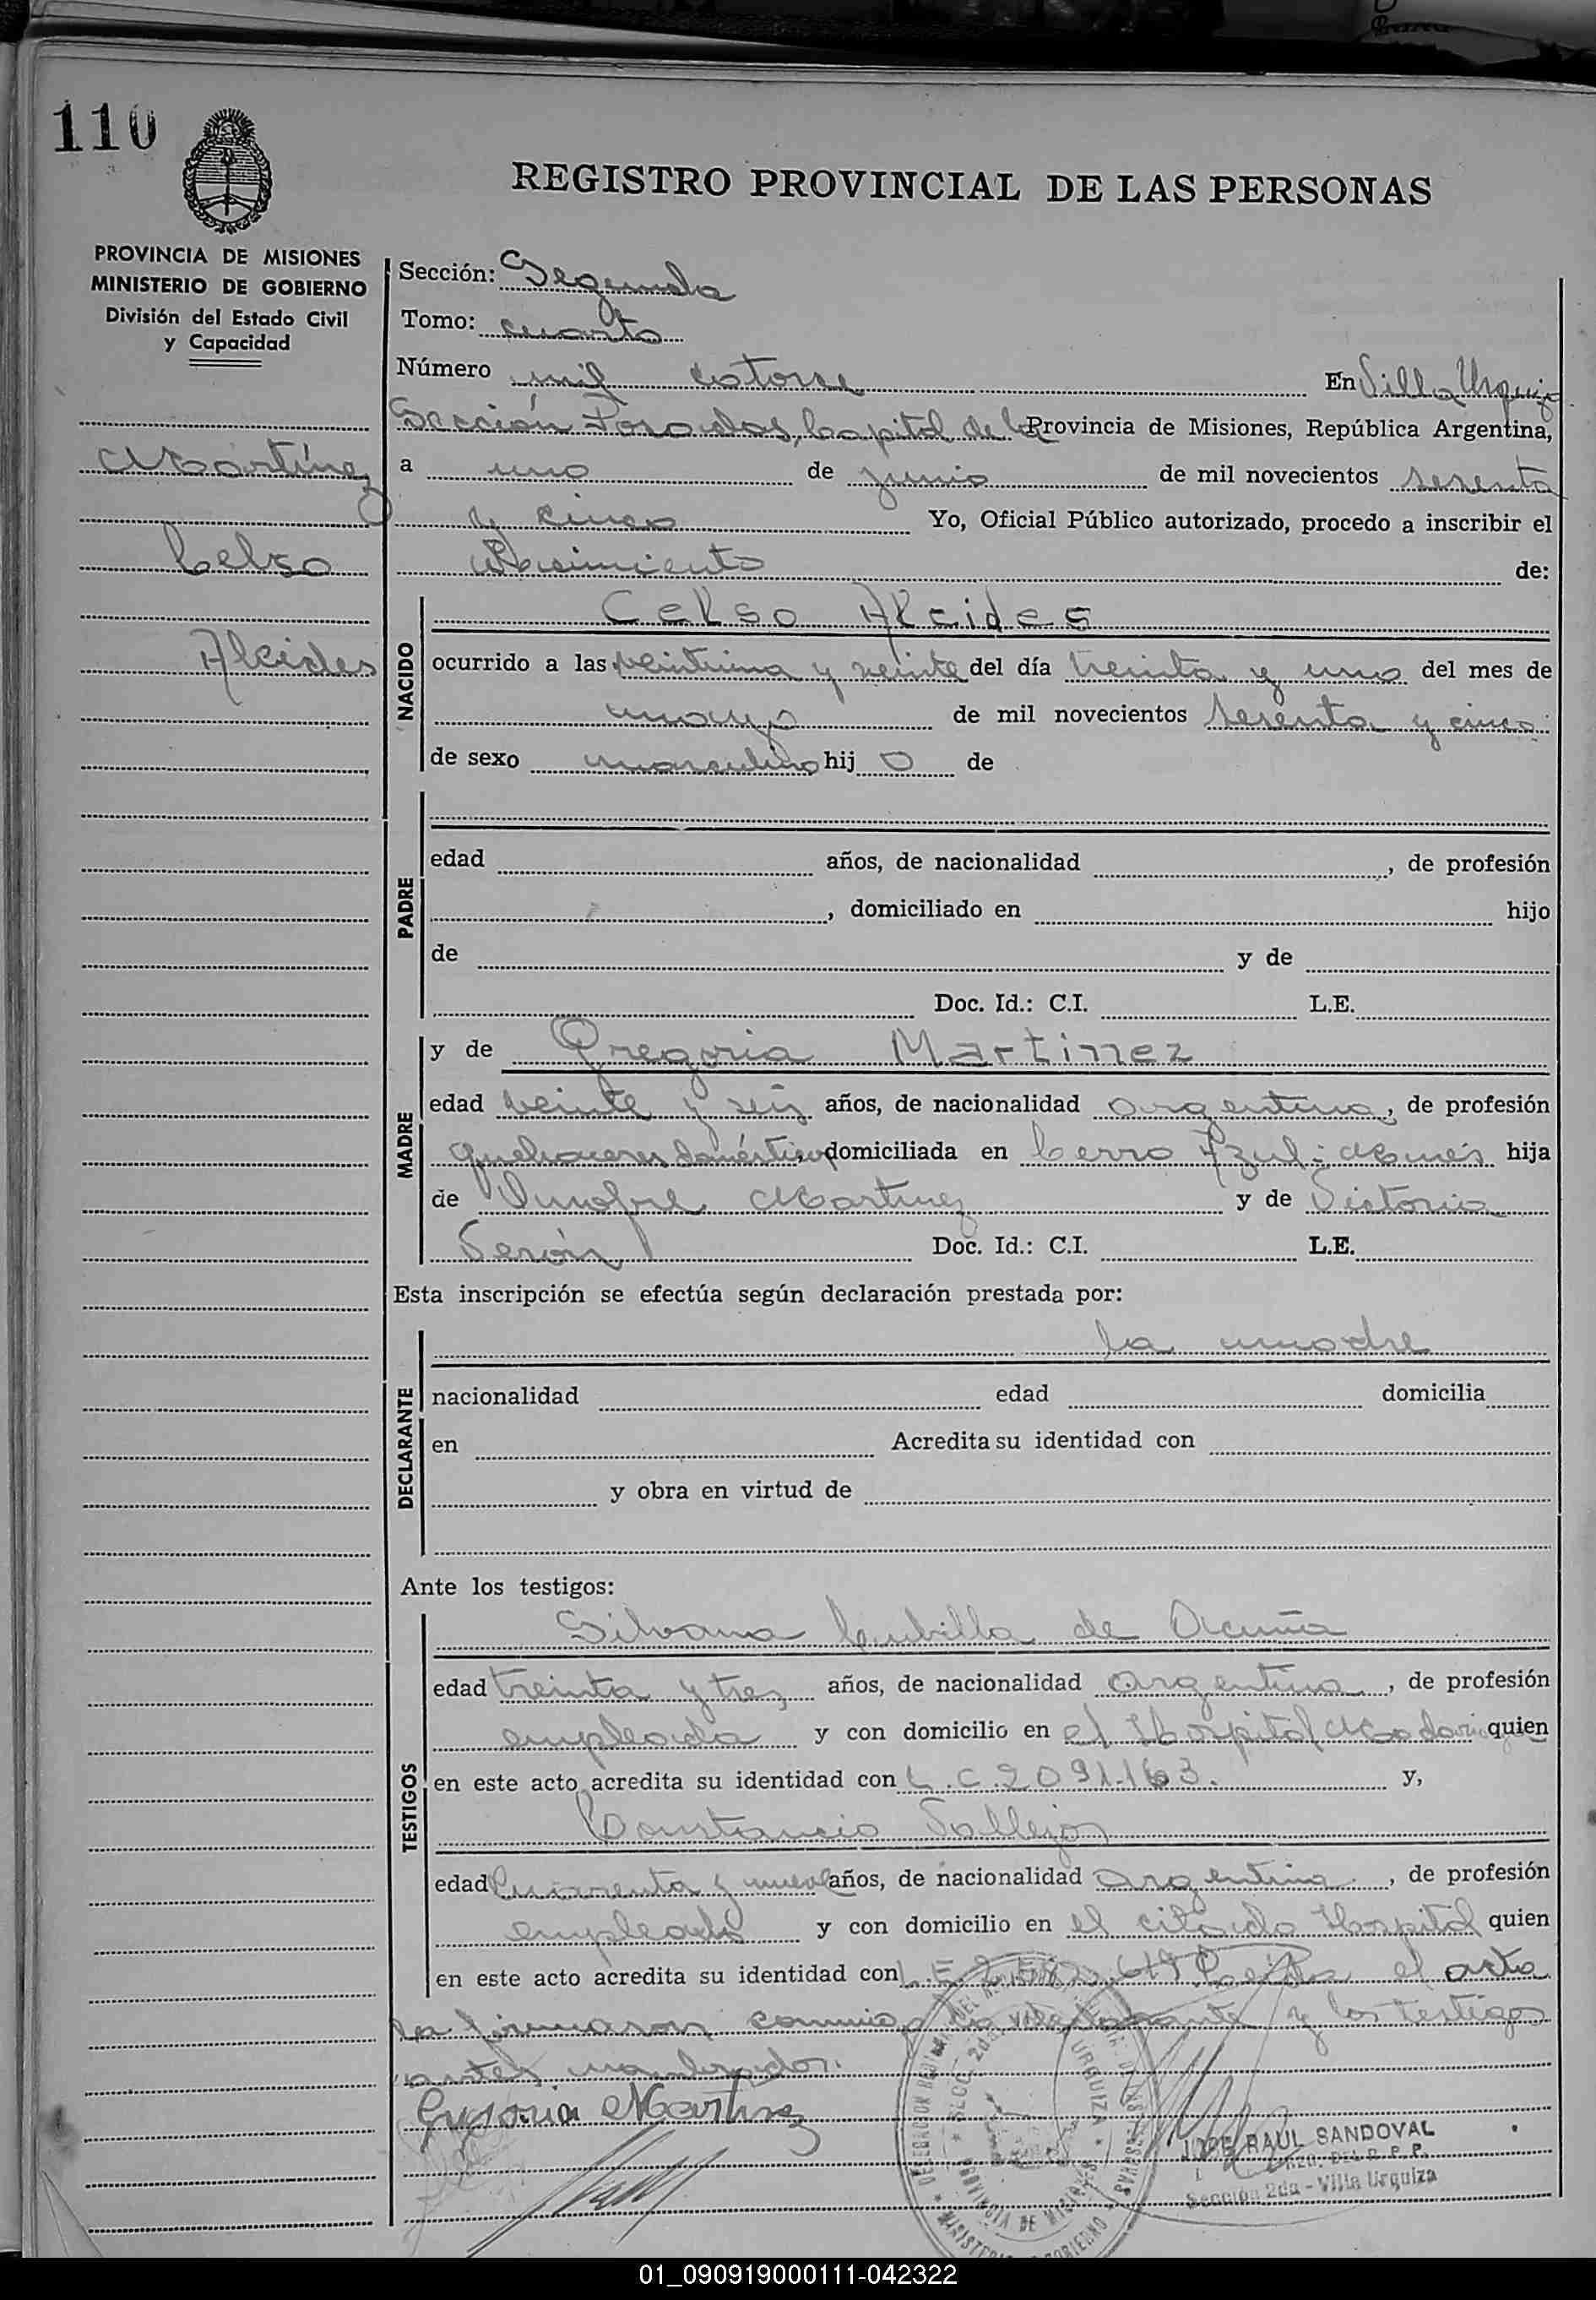 110
REGISTRO PROVINCIAL DE LAS PERSONAS
PROVINCIA DE MISIONES
MINISTERIO DE GOBIERNO
División del Estado Civil
y Capacidad
Martínez
Celso
Alcides
Sección: Segunda
Tomo: cuarto
Número mil catorse En Villa Urquiza
Sección Posadas, Capital de la Provincia de Misiones, República Argentina,
a uno de junio de mil novecientos sesenta
y cinco Yo, Oficial Público autorizado, procedo a inscribir el
Nasimiento de:
NACIDO
Celso Alcides
ocurrido a las veintiuna y veinte del día treinta y uno del mes de
mayo de mil novecientos sesenta y cinco
de sexo masculino hij o de
PADRE
edad años, de nacionalidad , de profesión
, domiciliado en hijo
de y de
Doc. Id.: C.I. L.E.
MADRE
y de Gregoria Martinez
edad veinte y seis años, de nacionalidad argentina, de profesión
quehaceres doméstico, domiciliada en Cerro Azul - Mnes hija
de Onofre Martinez y de Victoria
Doc. Id.: C.I. L.E.
Esta inscripción se efectúa según declaración prestada por:
DECLARANTE
la madre
nacionalidad edad domicilia
en Acredita su identidad con
y obra en virtud de
Ante los testigos:
TESTIGOS
Silvana Cubilla de Acuña
edad treinta y tres años, de nacionalidad argentina, de profesión
empleada y con domicilio en el Hospital Madariaga quien
en este acto acredita su identidad con L.C. 2091.163. y,
Constancio Vallejos
edad Cuarenta y nueve años, de nacionalidad argentina, de profesión
empleado y con domicilio en el citado Hospital quien
en este acto acredita su identidad con L.E. el acta
la firmaron conmigo la declarante y los testigos
antes nombrados.
Gregoria Martinez
JOSE RAUL SANDOVAL
Sección 2da - Villa Urquiza
01_090919000111-042322